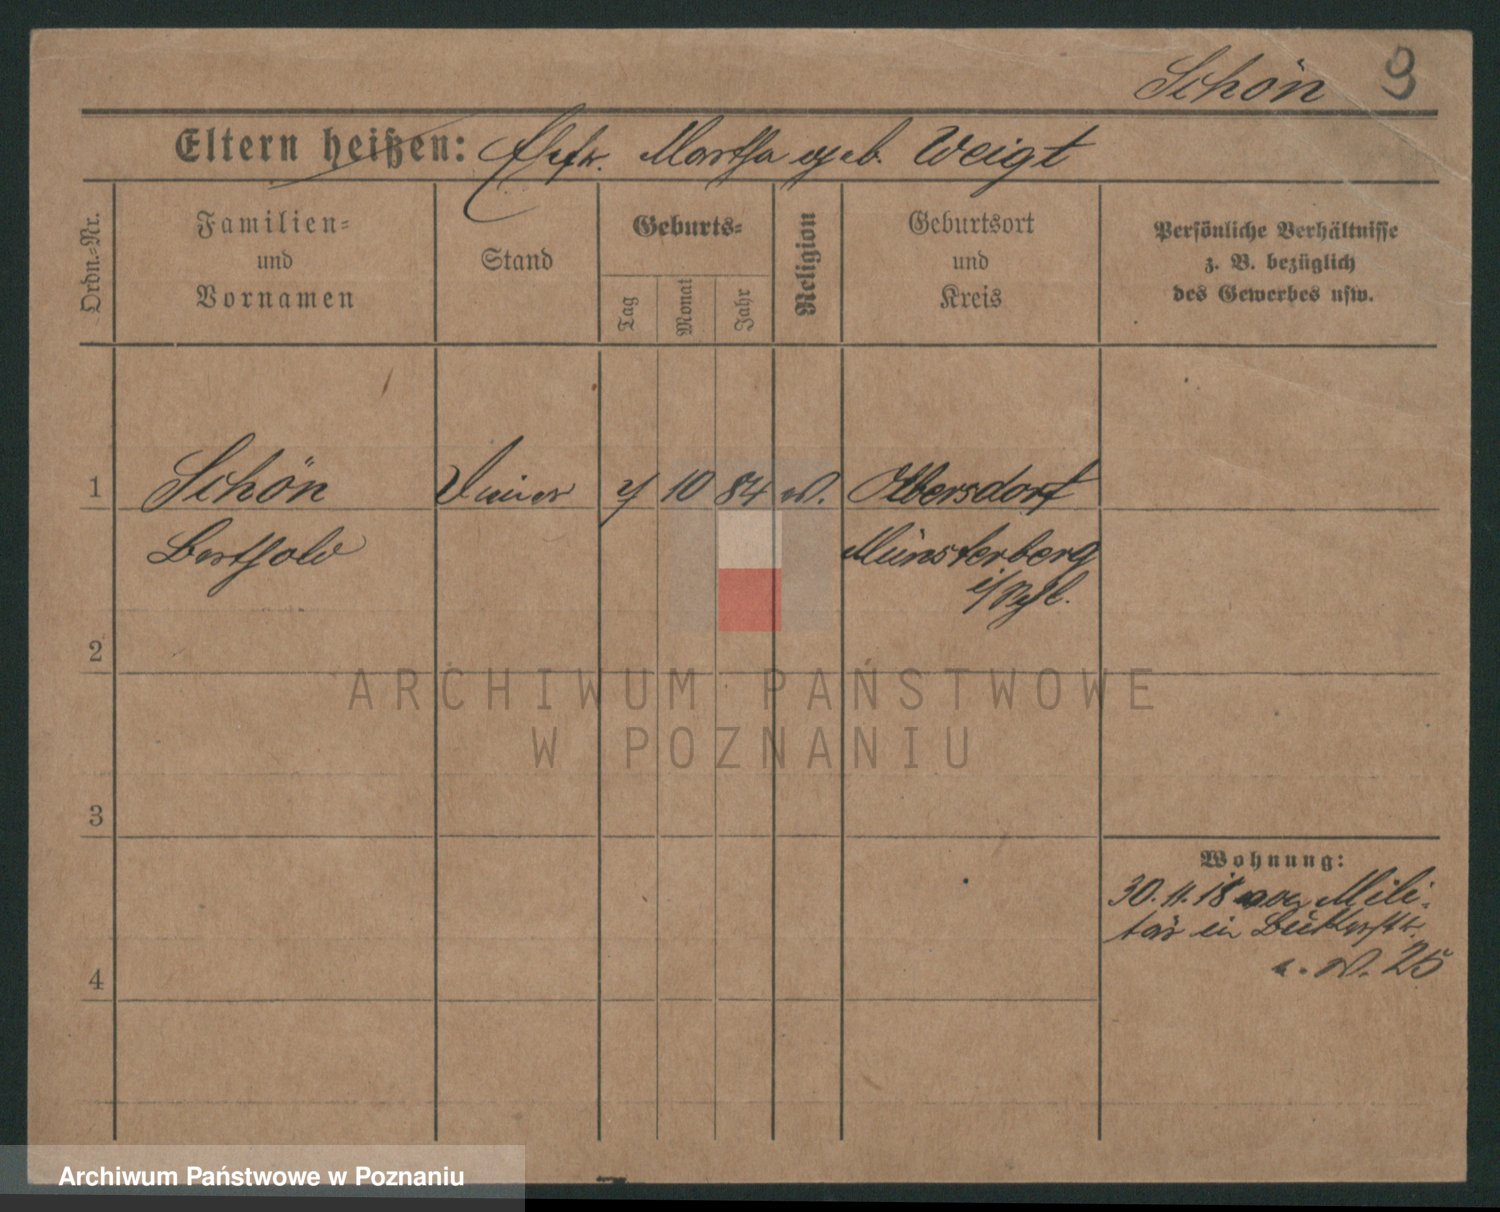 Schön 9
Eltern heißen: Ehefr. Martha geb. Weigt
Ordn.-Nr.
Familien-
und
Vornamen
Stand
Geburts-
Tag
Monat
Jahr
Religion
Geburtsort
und
Kreis
Persönliche Verhältnisse
z. B. bezüglich
des Gewerbes usw.
1 Schön 10 84 Olbersdorf
Berthold Münsterberg
2
3
4
Wohnung:
30.11.18 Mili-
tär in
25
ARCHIWUM PAŃSTWOWE
W POZNANIU
Archiwum Państwowe w Poznaniu